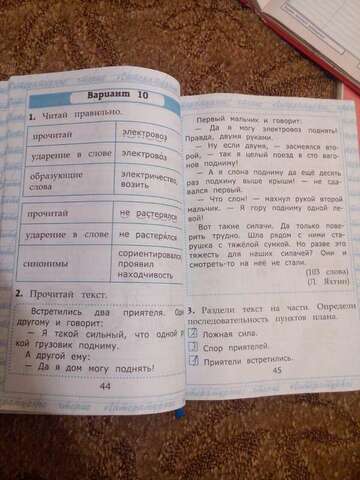 Вариант 10
1. Читай правильно.
прочитай
электровоз
ударение в слове
электровоз
образующие
слова
электричество,
возить
прочитай
не растерялся
ударение в слове
не растерялся
синонимы
сориентировался
проявил
находчивость
2. Прочитай текст.
Встретились два приятеля.
другому и говорит:
— Я такой сильный, что одной
кой грузовик подниму.
А другой ему:
— Да я дом могу поднять!
44
Первый мальчик и говорит:
— Да я могу электровоз поднять!
Правда, двумя руками.
— Ну если двумя, — засмеялся вто-
рой, — так я целый поезд в сто ваго-
нов подниму!
— А я слона подниму да ещё десять
раз подкину выше крыши! — не сда-
вался первый.
— Что слон! — махнул рукой второй
мальчик. — Я гору подниму одной ле-
вой!
Вот такие силачи. Да только пове-
рить трудно. Шла рядом с ними ста-
рушка с тяжёлой сумкой. Но разве это
тяжесть для наших силачей? Они и
смотреть-то на неё не стали.
(103 слова)
(Л. Яхнин)
3. Раздели текст на части. Определи
последовательность пунктов плана.
Ложная сила.
Спор приятелей.
Приятели встретились.
45